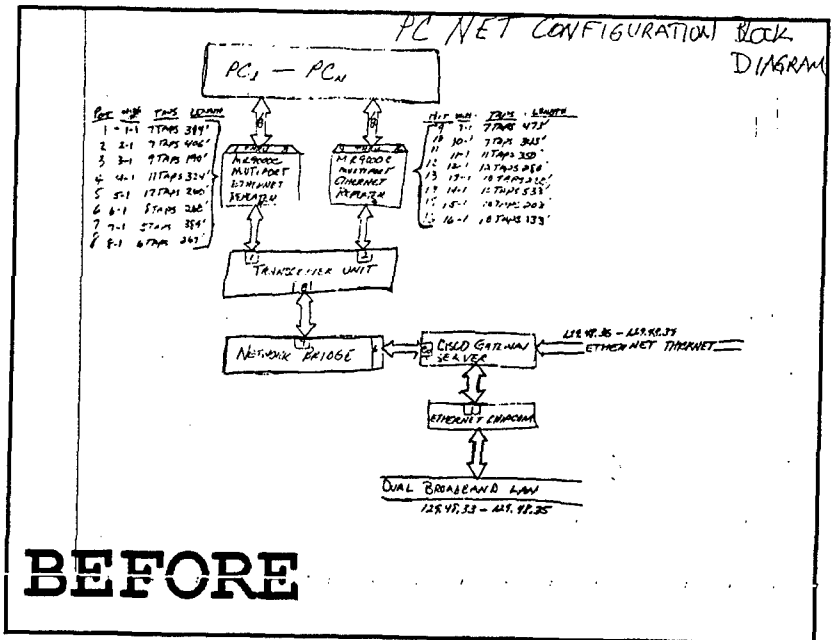 PC NET CONFIGURATION BLOCK
DIAGRAM
PC1 — PCN
TAPS LENGTH
1 1-1 7 TAPS 389'
2 2-1 7 TAPS 406'
3 3-1 9 TAPS 190'
4 4-1 11 TAPS 324'
5 5-1 12 TAPS 260'
6 6-1 8 TAPS 268'
7 7-1 5 TAPS 384'
8 8-1 6 TAPS 267'
MR9000C
MULTIPORT
ETHERNET
REPEATER
MR9000C
MULTIPORT
ETHERNET
REPEATER
TAPS LENGTH
9 9-1 7 TAPS 475'
10 10-1 7 TAPS
11 11-1 11 TAPS 350'
12 12-1 12 TAPS 250'
13 13-1 10 TAPS
14 14-1 12 TAPS 533'
15-1 10 TAPS 203'
16-1 10 TAPS 133'
TRANSCEIVER UNIT
NETWORK BRIDGE
CISCO GATEWAY
SERVER
ETHERNET THICKNET
ETHERNET CHIPCOM
DUAL BROADBAND LAN
129.48.33 - 129.48.35
BEFORE